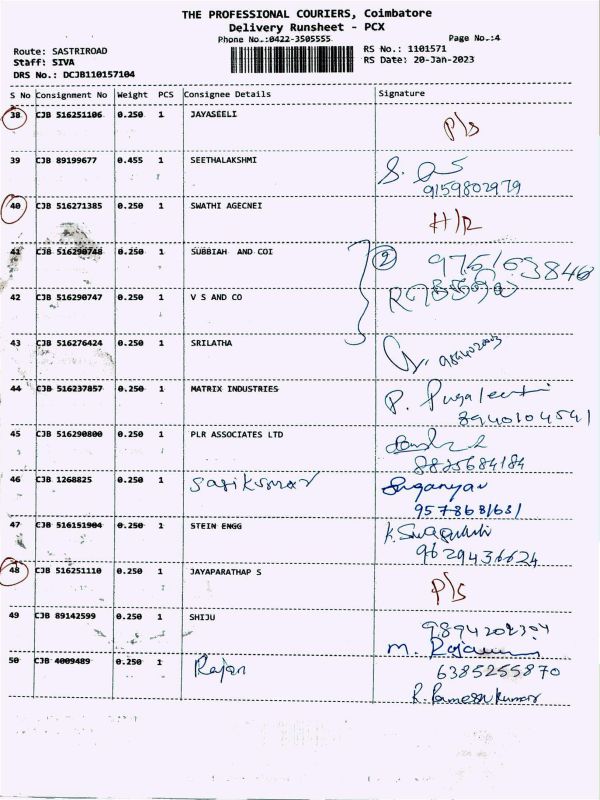 THE PROFESSIONAL COURIERS, Coimbatore
Delivery Runsheet - PCX
Phone No.:0422-3505555
Page No.:4
Route: SASTRIROAD
RS No.: 1101571
Staff: SIVA
RS Date: 20-Jan-2023
DRS No.: DCJB110157104
S No Consignment No Weight PCS Consignee Details Signature
38 CJB 516251106 0.250 1 JAYASEELI P/S
39 CJB 89199677 0.455 1 SEETHALAKSHMI
9159802979
40 CJB 516271385 0.250 1 SWATHI AGECNEI
41 CJB 516290748 0.250 1 SUBBIAH AND COI 2 975163846
42 CJB 516290747 0.250 1 V S AND CO
43 CJB 516276424 0.250 1 SRILATHA
44 CJB 516237857 0.250 1 MATRIX INDUSTRIES P. Pugalenthi
8940104541
45 CJB 516290800 0.250 1 PLR ASSOCIATES LTD
8825684184
46 CJB 1268825 0.250 1 Sasikumar Suganyar
9578681681
47 CJB 516151904 0.250 1 STEIN ENGG
9629436624
48 CJB 516251110 0.250 1 JAYAPARATHAP S P/S
49 CJB 89142599 0.250 1 SHIJU
50 CJB 4009489 0.250 1 Rajan 6385255870
R. Rameshkumar